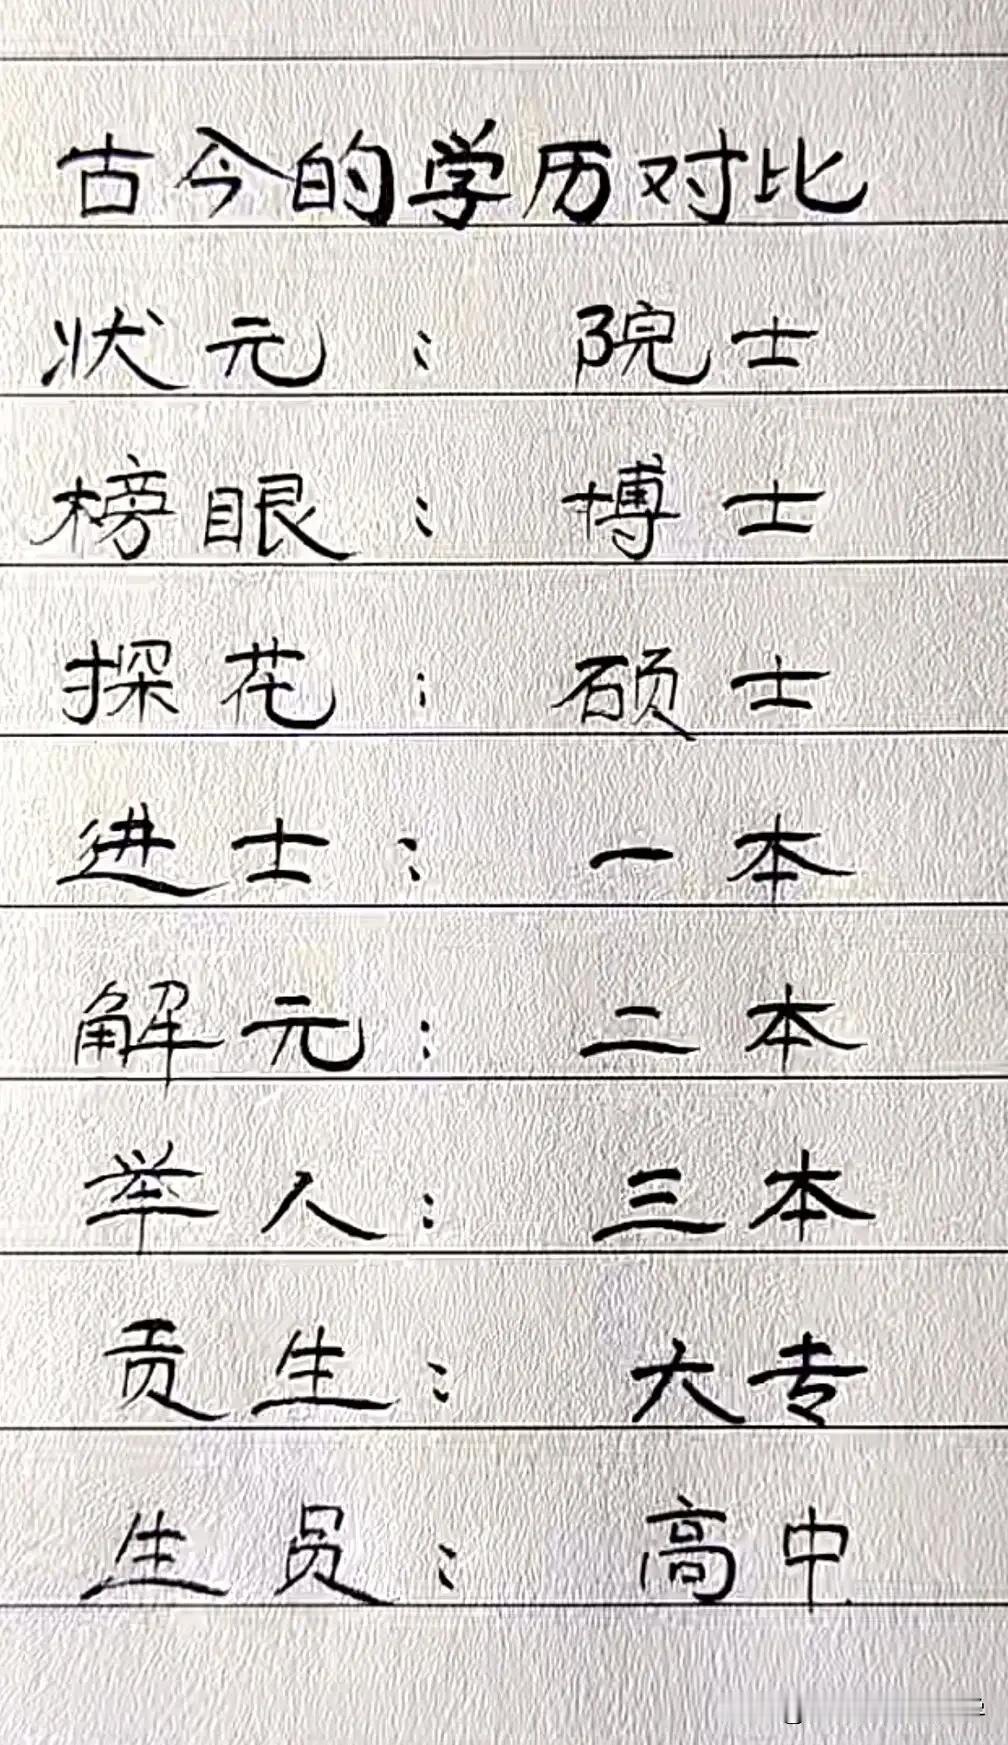 古今的学历对比
状元：院士
榜眼：博士
探花：硕士
进士：一本
解元：二本
举人：三本
贡生：大专
生员：高中